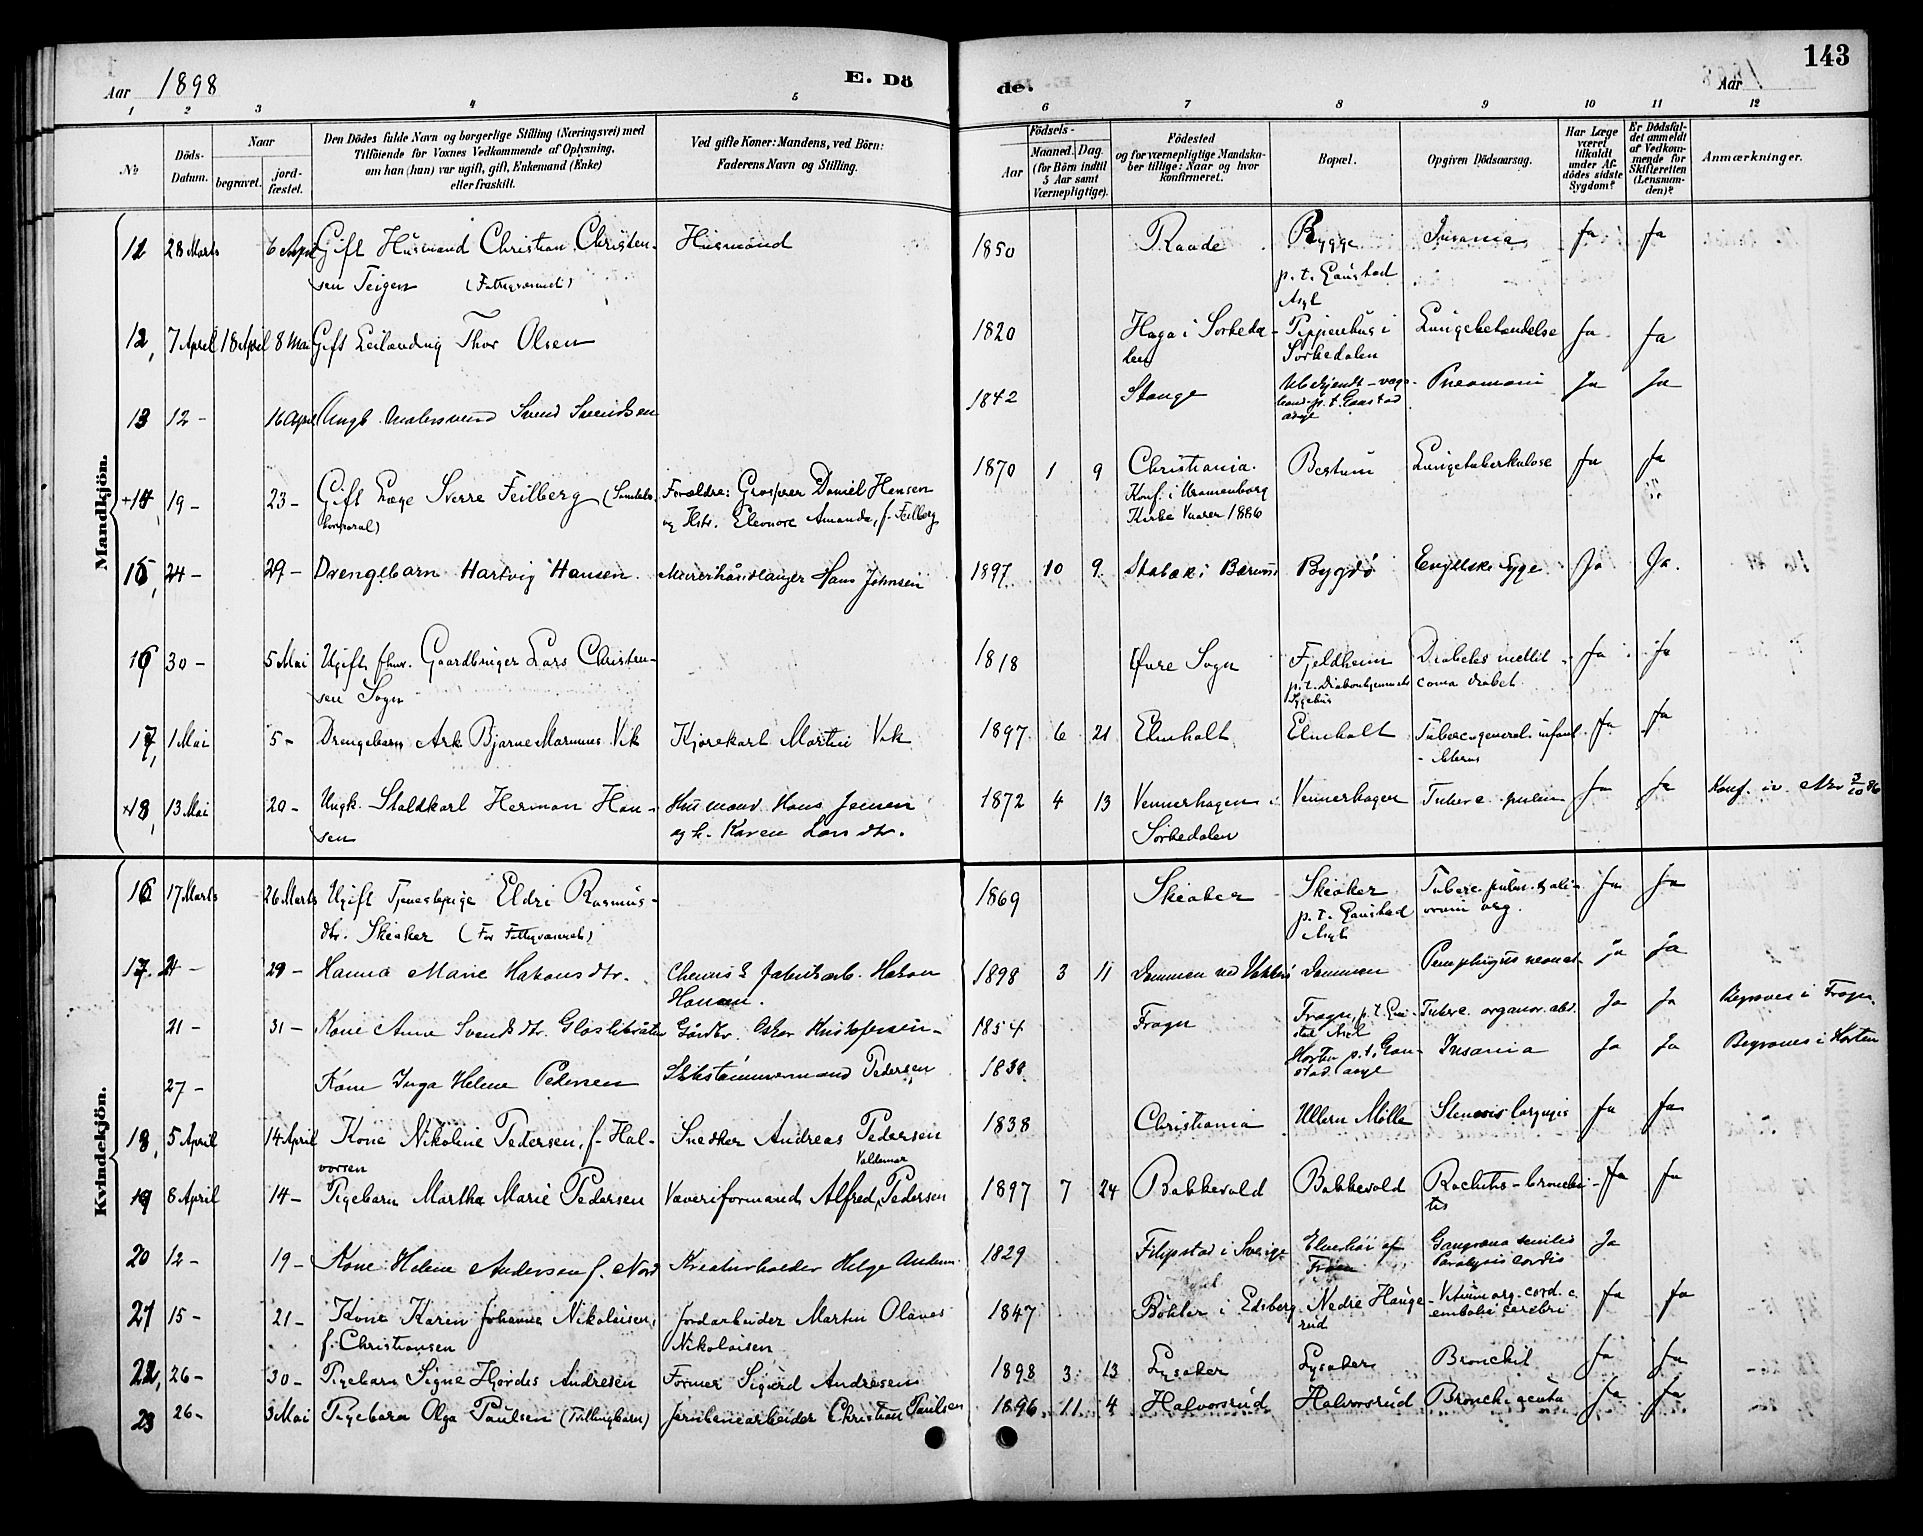 143
Aar 1898
E. Dö
de.
Aar
1 2 3 4 5 6 7 8 9 10 11 12
No
Döds-Datum.
Naar
begravet.
jord-fæstet.
Den Dödes fulde Navn og borgerlige Stilling (Næringsvei) med
Tilföiende for Voxnes Vedkommende af Oplysning,
om han (hun) var ugift, gift, Enkemand (Enke)
eller fraskilt.
Ved gifte Koner: Mandens, ved Börn:
Faderens Navn og Stilling.
Födsels-
Aar
Maaned. Dag.
(for Börn indtil
5 Aar samt
Værnepligtige).
Födested
og for værnepligtige Mandska-
ber tillige: Naar og hvor
konfirmeret.
Bopæl.
Opgiven Dödsaarsag.
Har Læge
været
tilkaldt
under Af-
dödes sidste
Sygdom?
Er Dödsfal-
det anmeldt
af Vedkom-
mende for
Skifteretten
(Lensman-
den)?
Anmærkninger.
Mandkjön.
28 Marts 6 April Gift Husmand Christian Christen- Husmand 1850 Raade Rygge Insania Ja Ja
sen Teigen p. t. Gaustad
Asyl
12, 7 April 18 April 8 Mai Gift Leilænding Thor Olsen 1820 Haga i Sørkeda- Pipperhus i Lungebetændelse Ja Ja
len Sørkedalen
13 12 - 16 April Svend Svendsen 1842 Stange Pneomoni Ja Ja
p. t. Gaustad
+14, 19 - 23 - Gift Læge Sverre Feilberg Forældre: Grosserer Daniel Hansen 1870 1 9 Christiania. Bestum Lungetuberkulose Ja Ja
og Hstr. Eleonore Amanda, f. Feilberg Konf. i Uranienborg
Kirke Vaaren 1886
15, 24 - 29 - Drengebarn Hartvig Hansen Murerhåndlanger Hans Johnsen 1897 10 9 Stabæk i Bærum Bygdø Engelsk Syge Ja Ja
16 30 - 5 Mai Ugift fhv. Gaardbruger Lars Christen- 1818 Øvre Sogn Fjeldheim Diabetes mellit. Ja Ja
sen Sogn p. t. Diakonhjemmets coma diabet.
Sygehus
17, 1 Mai 5 - Drengebarn Ark Bjarne Marinus Vik Kjørekarl Martin Vik 1897 6 21 Elmholt Elmholt Ja Ja
+18, 13 Mai 20 - Ungk. Staldkarl Herman Han- Husmand Hans Jensen 1872 4 13 Vennerhagen i Vennerhagen Tuberc. pulm Ja Ja Konf. 3/10 86
sen og h. Karen Larsdtr. Sørkedalen
Kvindekjön.
16 17 Marts 26 Marts Ugift Tjenestepige Eldri Rasmus- 1869 Skeaker Skeaker Tuberc. pulm. Ja Ja
dtr. Skeaker p. t. Gaustad
Asyl
17. 29 - Hanna Marie Hakonsdtr. fabrikarb. Hakon 1898 3 11 Pemphigus neonat. Ja Ja
Hansen.
21 - 31 - Kone Anna Svendsdtr. Glaslibråten Gårdbr. Kristofersen 1854 Frogn Frogn, p. t. Gau- Tuberc. organor. abd. Ja Ja Begraves i Frogn.
stad Asyl
27 - Kone Inga Helene Pedersen Skibstømmermand Pedersen Horten p. t. Gau- Insania Ja Ja Begraves i Horten
stad asyl
18, 5 April 14 April Kone Nikoline Pedersen, f. Hal- Snedker Andreas Pedersen 1838 Christiania Ullern Mølle Stenosis laryngis Ja Ja
vorsen
19 8 April 14 - Pigebarn Martha Marie Pedersen Væveriformand Alfred Valdemar Pedersen 1897 7 24 Bakkevold Bakkevold Rachitis - bronchi- Ja Ja
tis
20 12 - 19 - Kone Helene Andersen f. Nord Kreaturholder Helge Andersen 1829 Filipstad i Sverige Elverhøi af Gangræna senilis Ja
Paralysis cordis
21 15 - 21 - Kone Karen Johanne Nikolaisen, Jordarbeider Martin Olaves 1847 Bøhler i Edsberg Nedre Hauge- Vitium org. cord. c. Ja Ja
f. Christiansen Nikolaisen rud embolia cerebri
22, 26 - 30 - Pigebarn Signe Hjørdis Andresen Former Sigurd Andresen 1898 3 13 Lysaker Lysaker Bronchit Ja Ja
23 26 - 3 Mai Pigebarn Olga Paulsen (Tvillingbarn) Jernbanearbeider Christian Paulsen 1896 11 4 Halvorsrud Halvorsrud Bronch. acuta Ja Ja